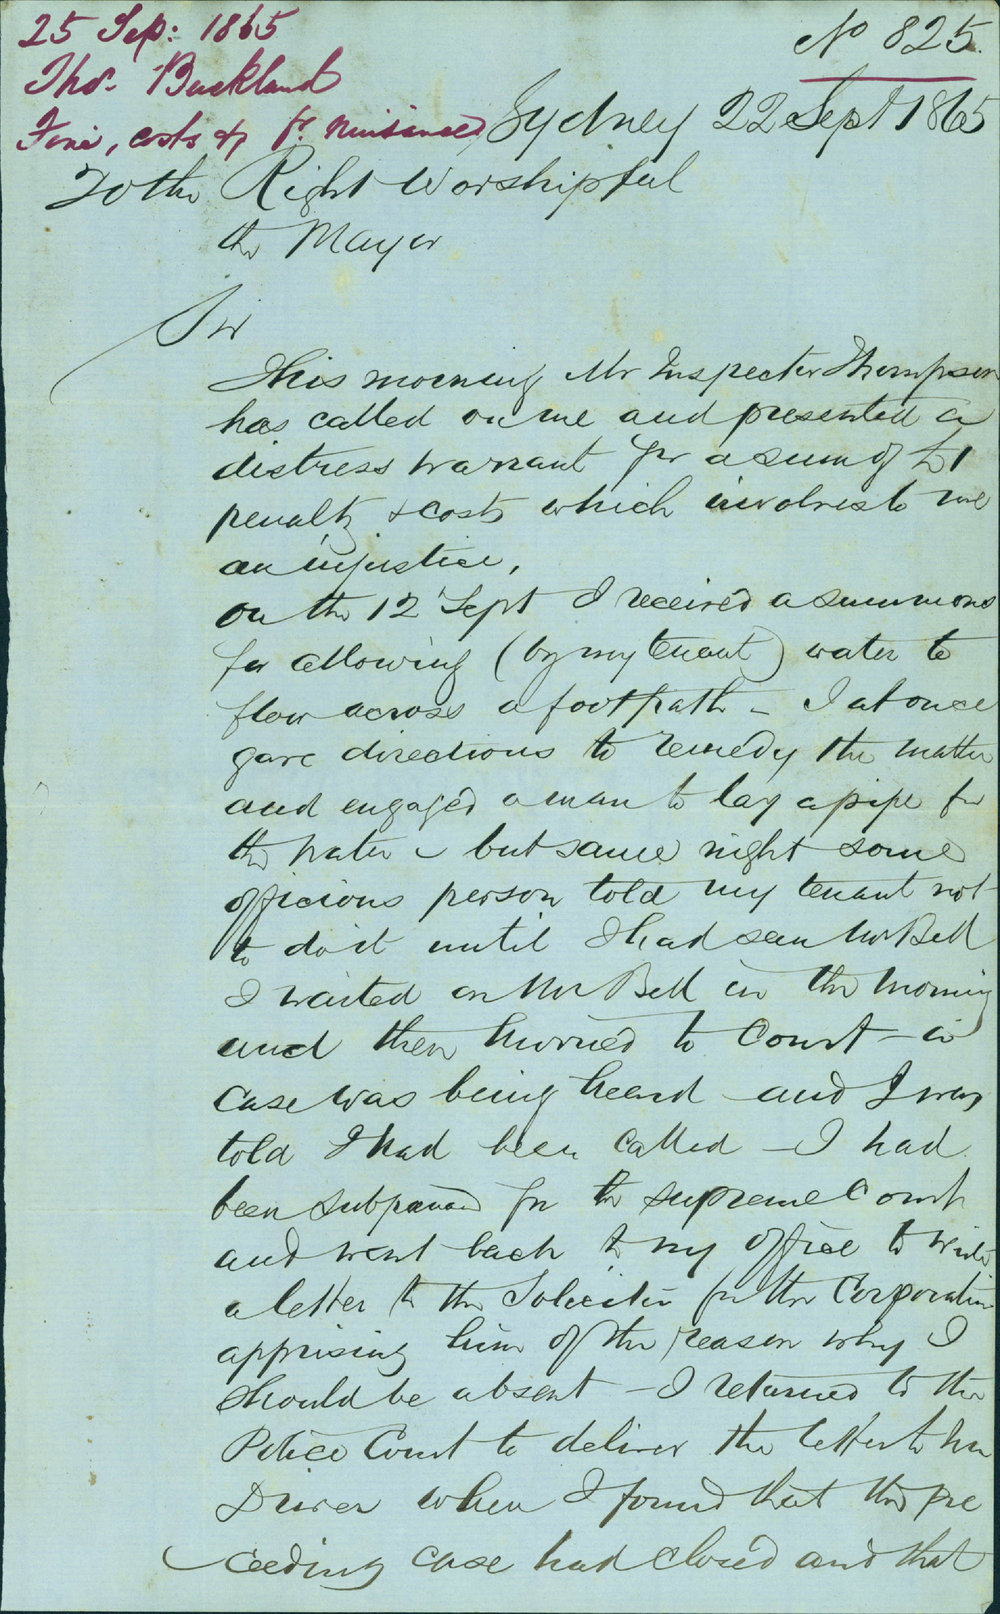 25 Sep: 1865
Thos. Buckland
Fine, costs &c fr. nuisances
No 825.
Sydney 22 Sept 1865
To the Right Worshipful
the Mayor
Sir
This morning Mr Inspector Thompson
has called on me and presented a
distress warrant for a sum of £1
penalty & costs which involves to me
an injustice,
on the 12 Sept I received a summons
for allowing (by my tenant) water to
flow across a footpath – I at once
gave directions to remedy the matter
and engaged a man to lay a pipe for
the water – but same night some
officious person told my tenant not
to do it until I had seen Mr Bell
I waited on Mr Bell in the morning
and then hurried to Court – a
case was being heard and I was
told I had been called – I had
been subpœnaed for the supreme Court
and went back to my office to write
a letter to the Solicitor for the Corporation
apprising him of the reason why I
should be absent – I returned to the
Police Court to deliver the letter to Mr
Driver when I found that the pre
ceeding case had closed and that